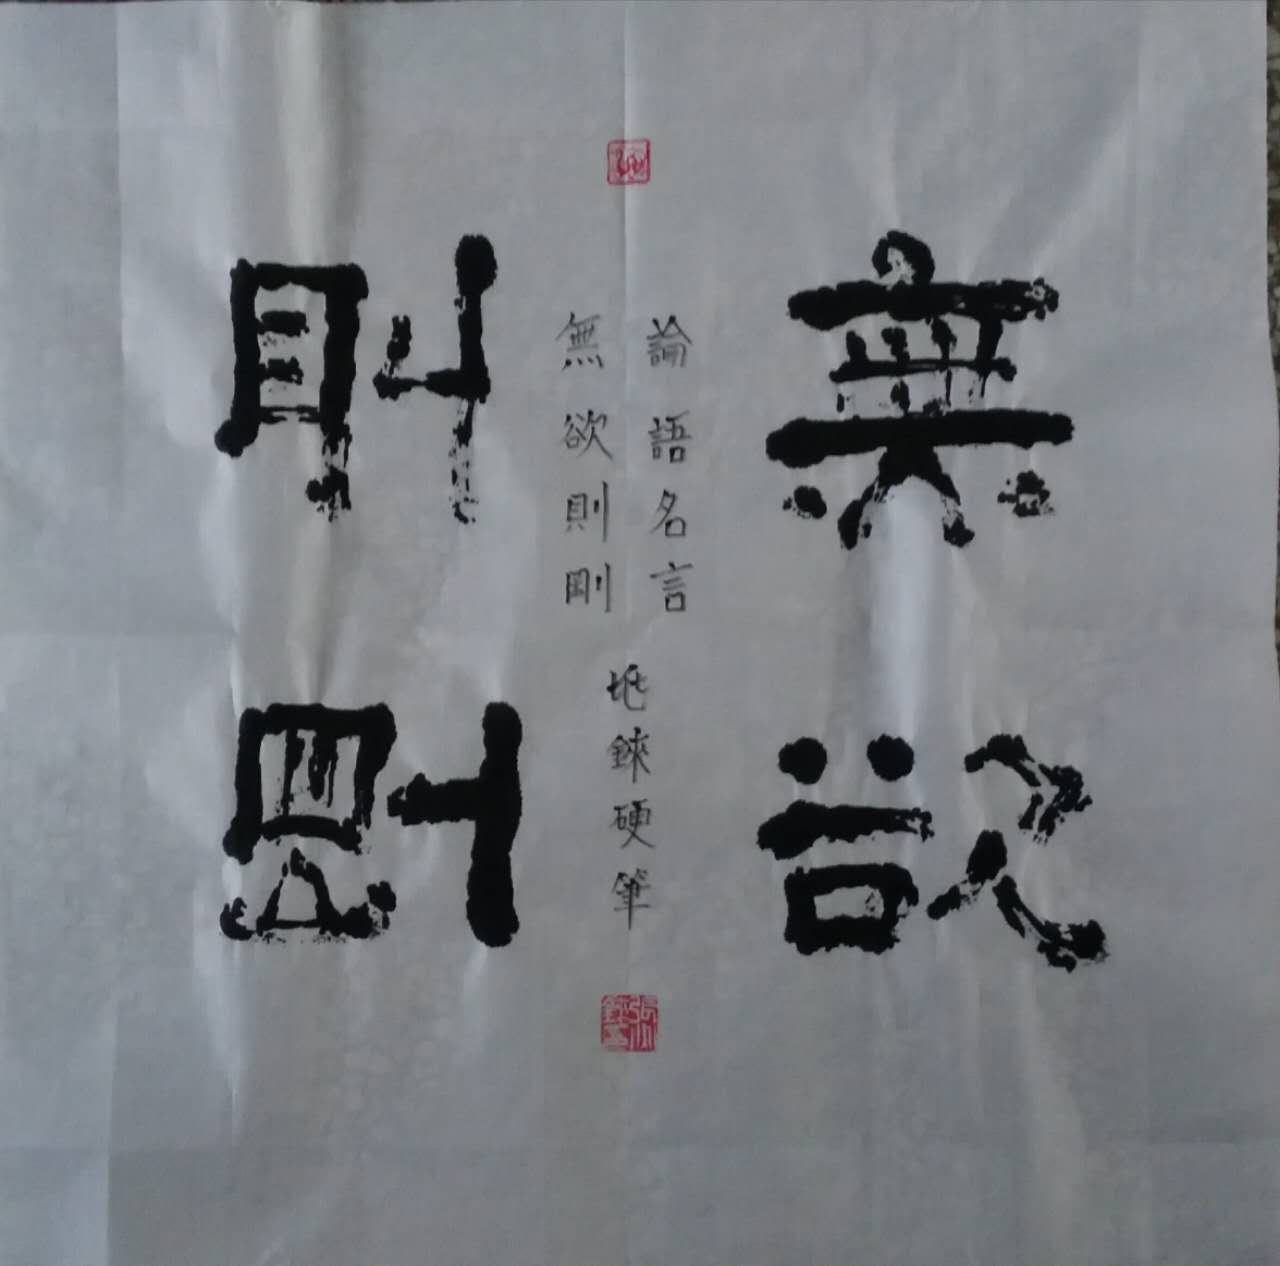 無欲
則剛
論語名言
無欲則剛
硬筆